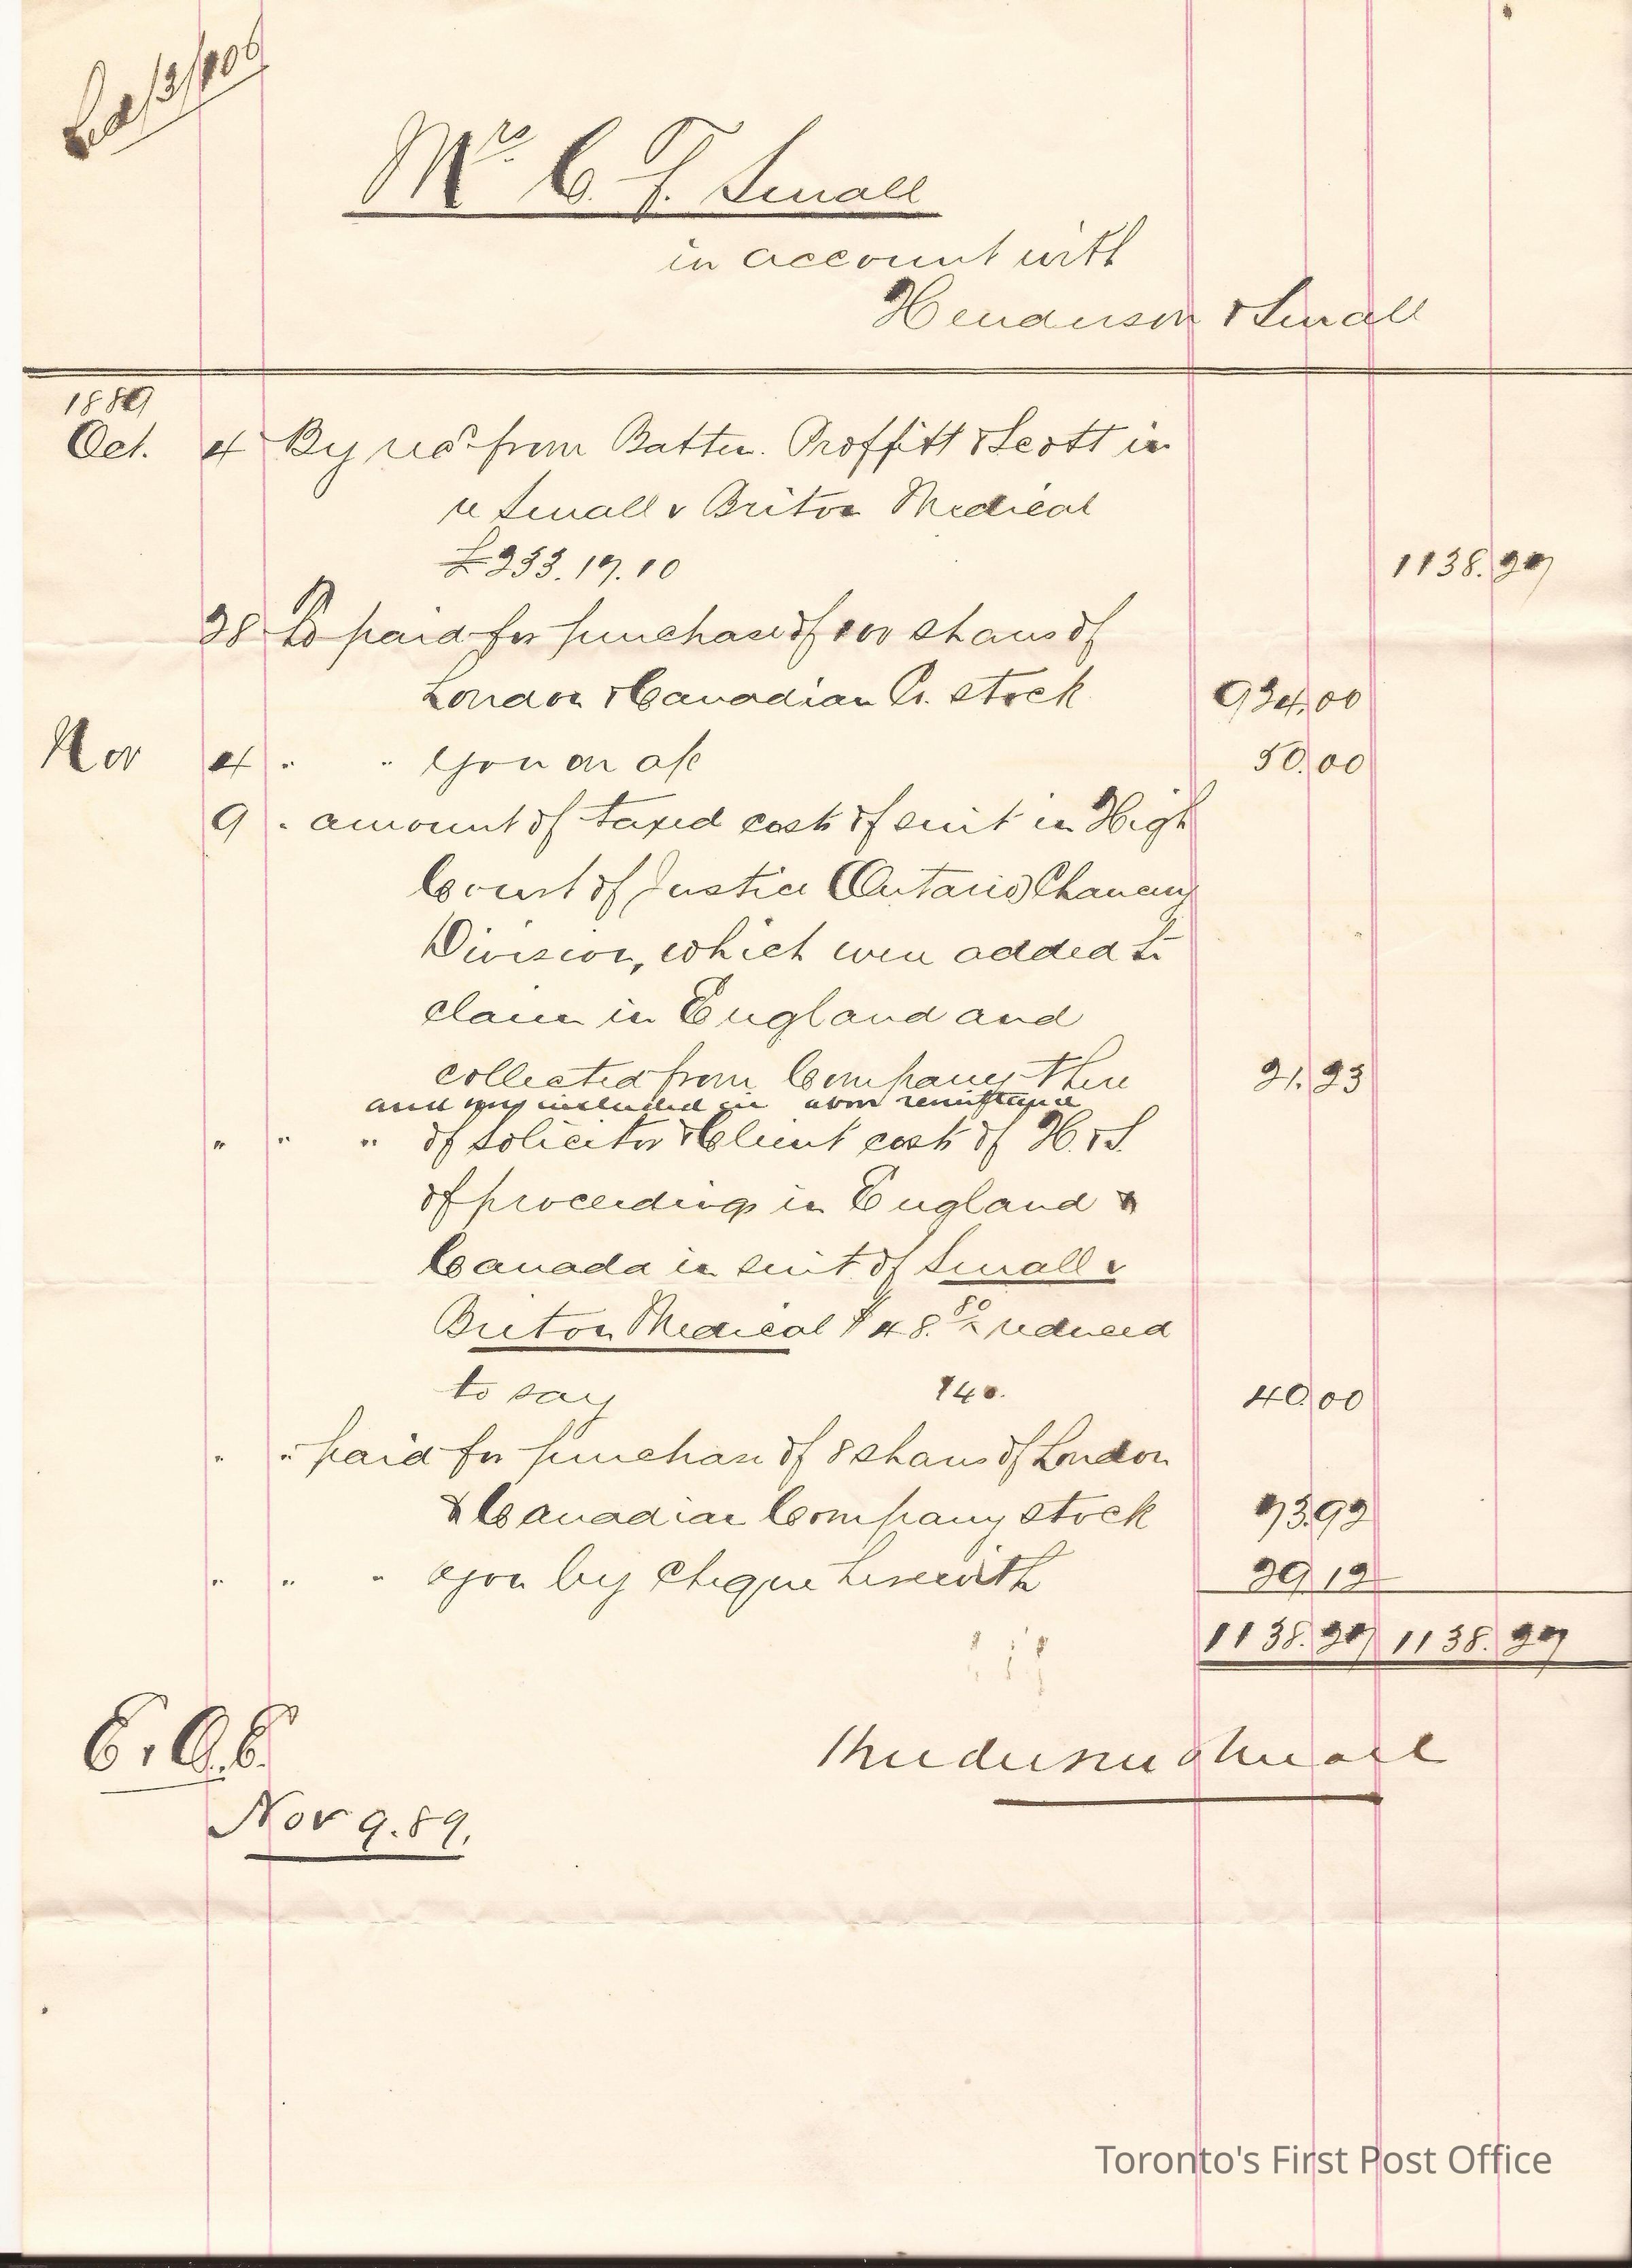 Mrs. C. F. Small
in account with
Henderson & Small
1889
Oct. 4 By recd from Batten. Proffitt & Scott in
re Small v Briton Medical
£233.17.10 1138.27
28 To paid for purchase of 100 shares of
London & Canadian Co. stock 924.00
Nov 4 " " you on a/c 50.00
9 " amount of taxed costs of suit in High
Court of Justice (Ontario) Chancery
Division, which were added to
claim in England and
collected from Company there 21.23
and included in above remittance
" " " of Solicitor & Client costs of H. & S.
of proceedings in England &
Canada in suit of Small v
Briton Medical $48.80 reduced
to say $40. 40.00
" " paid for purchase of 8 shares of London
& Canadian Company stock 73.92
" " " you by cheque herewith 29.12
1138.27 1138.27
E. & O. E.
Henderson & Small
Nov 9. 89.
Toronto's First Post Office